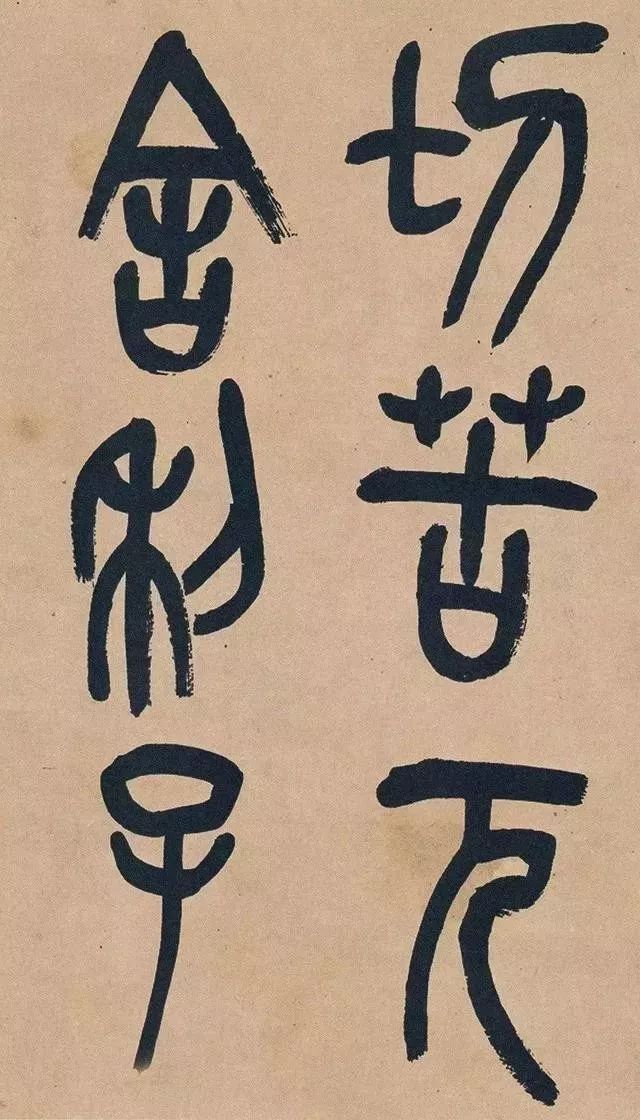 切苦厄
舍利子